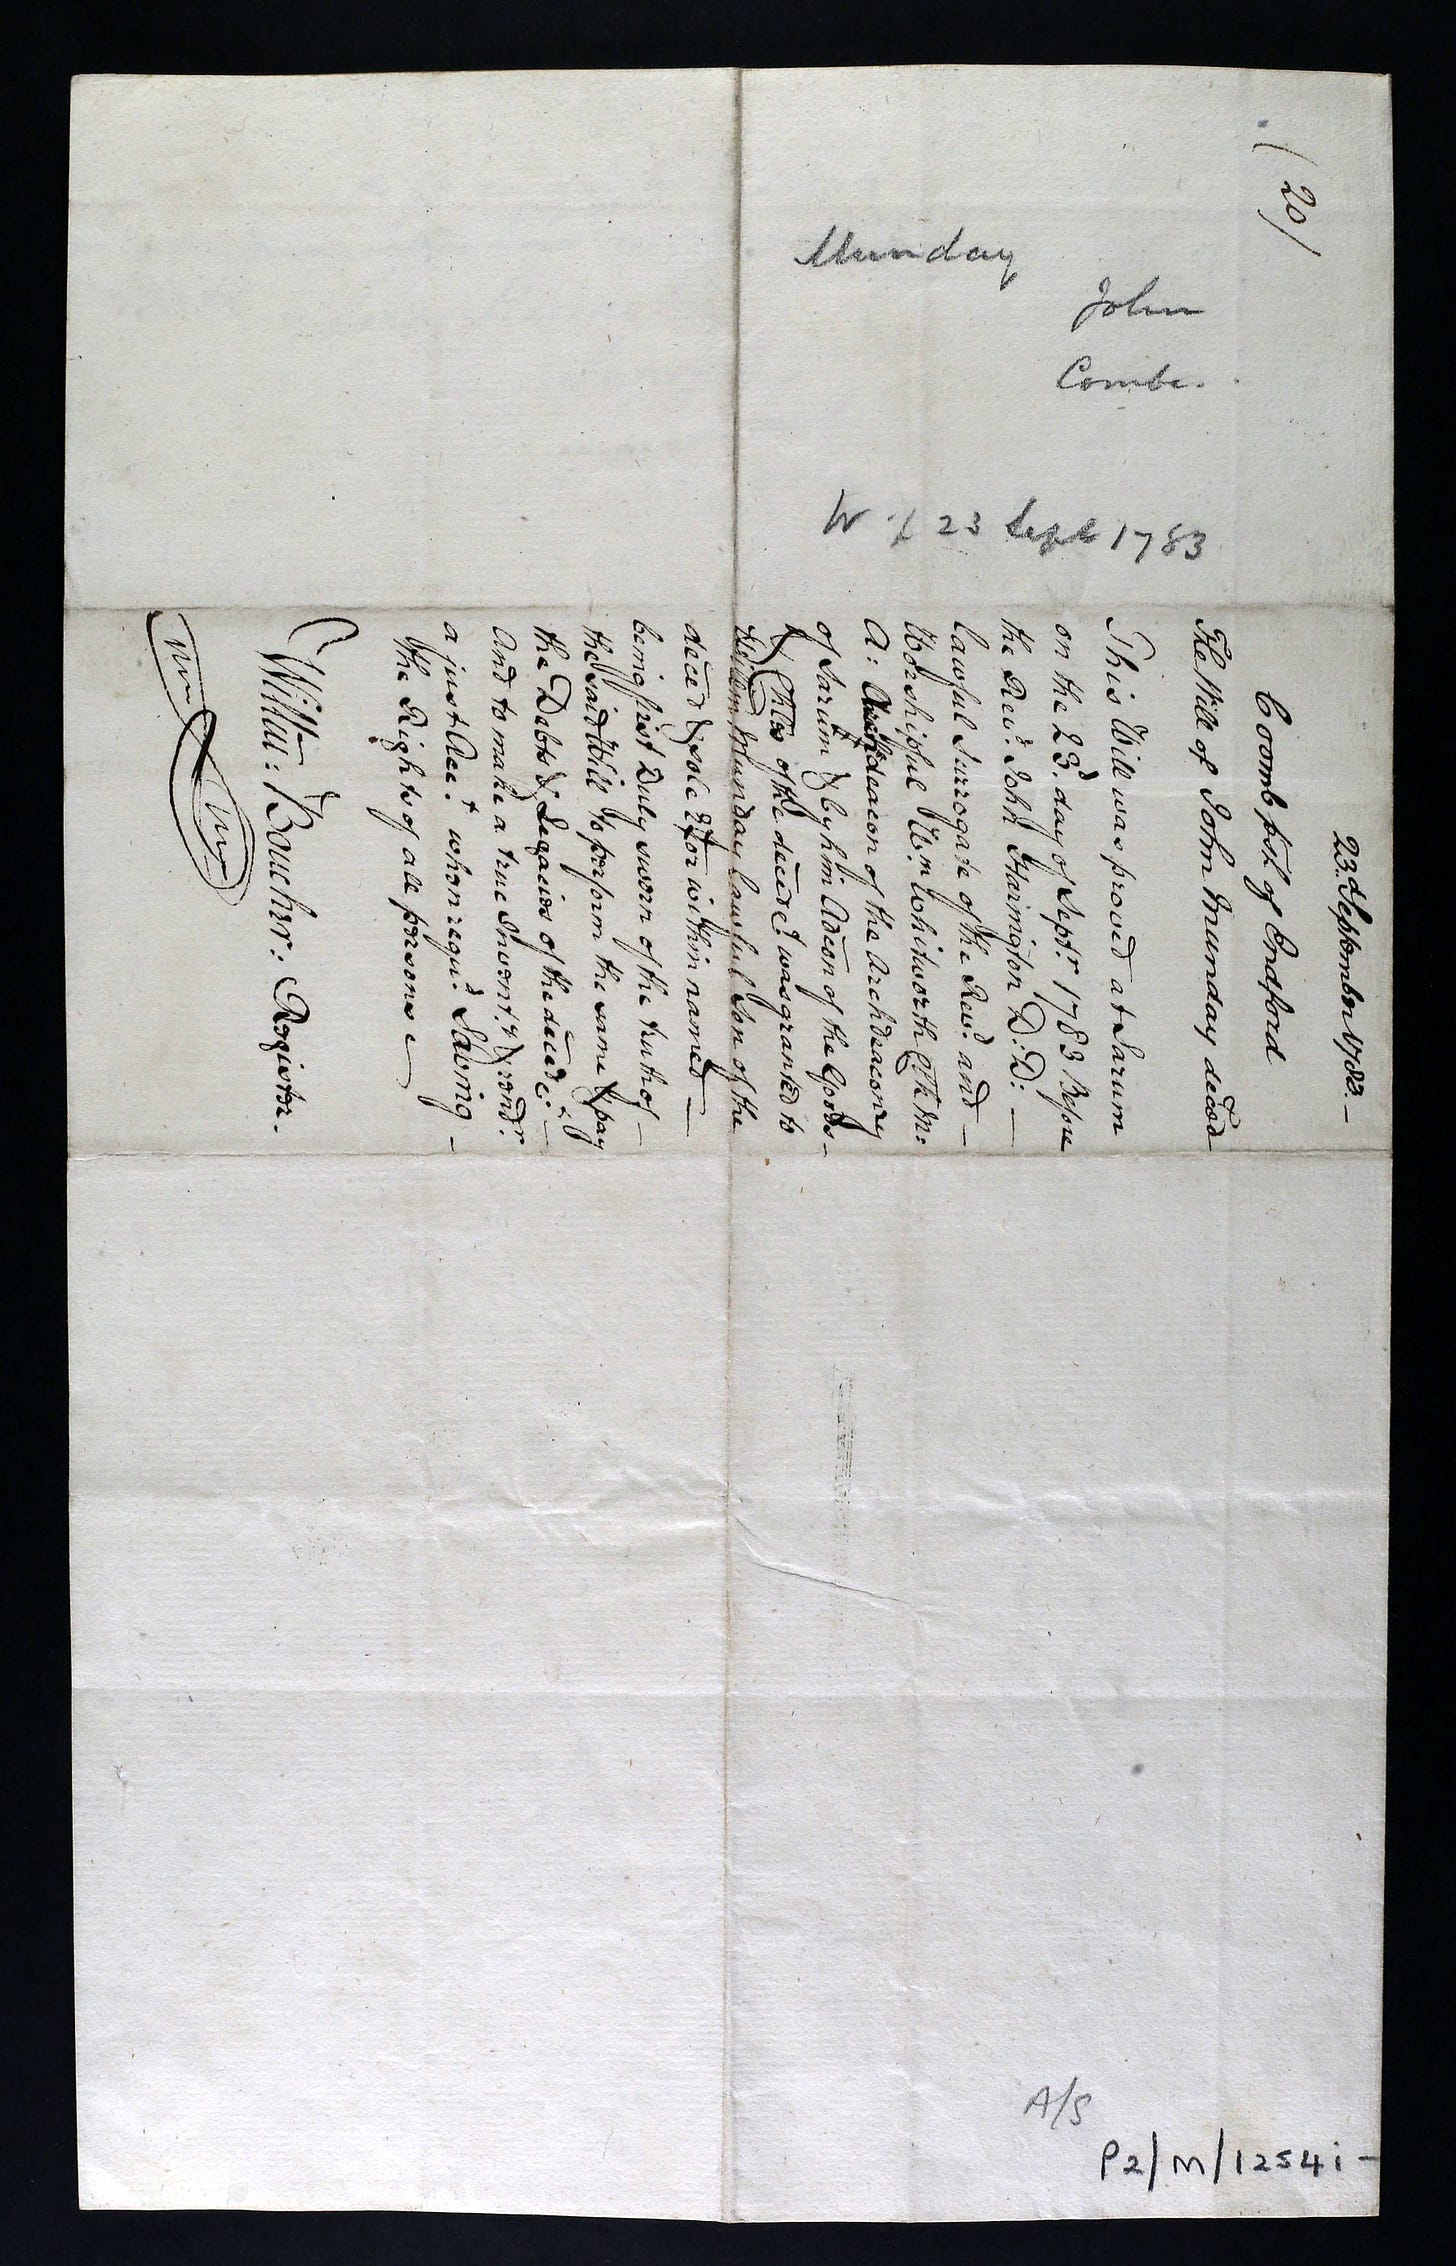 (20)
Munday
John
Combe.
W. f 23 Sept 1783
23.d September 1783. —
Coomb psh. of Endford
The Will of John Munday deced
This Will was proved at Sarum
on the 23.d day of Sept.r 1783 Before
the Rev.d John Harington D: D: —
lawful Surrogate of the Rev.d and —
Worshipful Wm. Whitworth Clk M:
A: Archdeacon of the Archdeaconry
of Sarum & by him Adcon of the Goods —
& Chles of the deced was granted to
Munday lawful Son of the
deced & sole Extor within named —
being first Duly sworn of the truth of —
the said Will To perform the same & pay
the Debts & Legacies of the deced: —
And to make a true Invent.y & rend.r
a just Acc.t when requ.d Saving —
the Rights of all persons —
Willm: Boucher: Register.
A/S
P2/M/1254 i -